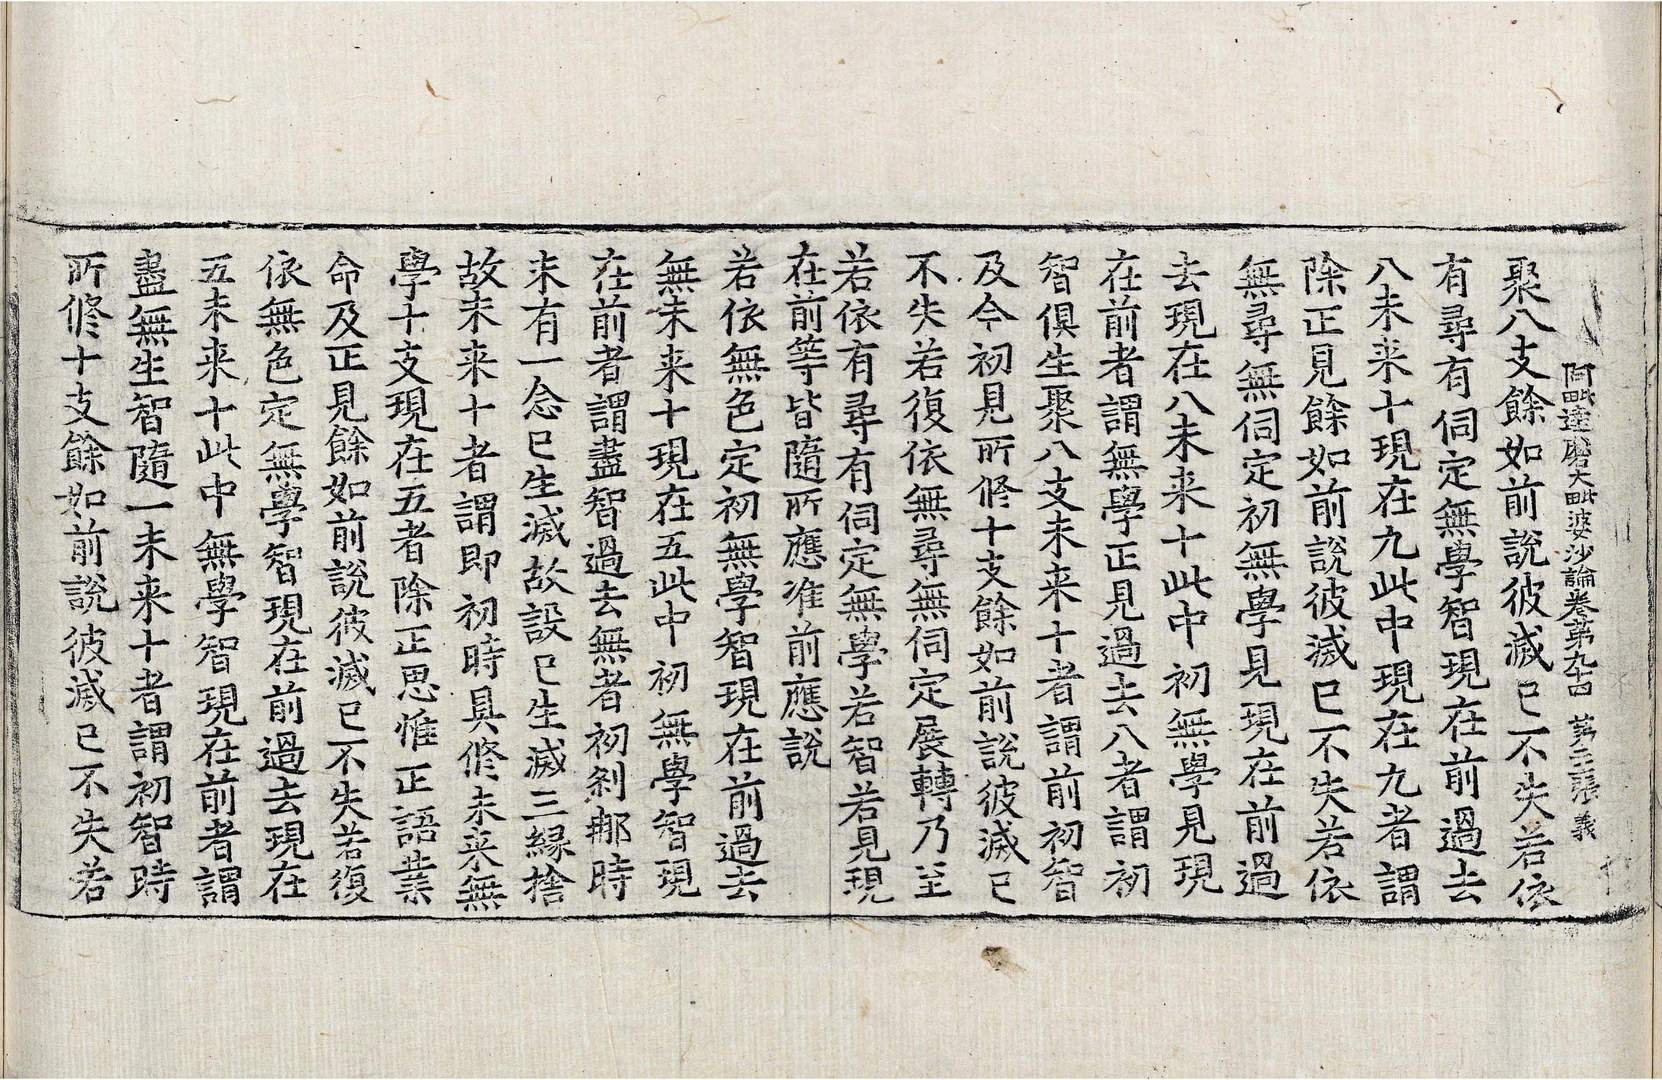 阿毗達磨大毗婆沙論卷第九十四　第二張　義
聚八支餘如前說彼滅已不失若依
有尋有伺定無學智現在前過去
八未来十現在九此中現在九者謂
除正見餘如前說彼滅已不失若依
無尋無伺定初無學見現在前過
去現在八未来十此中初無學見現
在前者謂無學正見過去八者謂初
智俱生聚八支未来十者謂前初智
及今初見所修十支餘如前說彼滅已
不失若復依無尋無伺定展轉乃至
若依有尋有伺定無學若智若見現
在前等皆隨所應准前應說
若依無色定初無學智現在前過去
無未来十現在五此中初無學智現
在前者謂盡智過去無者初剎那時
未有一念已生滅故設已生滅三緣捨
故未来十者謂即初時具修未来無
學十支現在五者除正思惟正語業
命及正見餘如前說彼滅已不失若復
依無色定無學智現在前過去現在
五未来十此中無學智現在前者謂
盡無生智隨一未来十者謂初智時
所修十支餘如前說彼滅已不失若